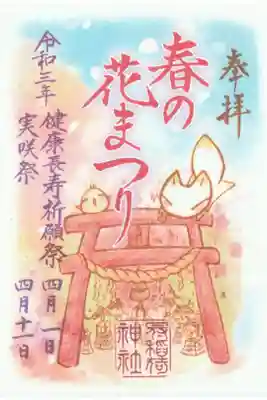 奉拝
春の
花まつり
令和三年 健康長寿祈願祭 四月一日
実咲祭 四月十一日
稲荷
神社